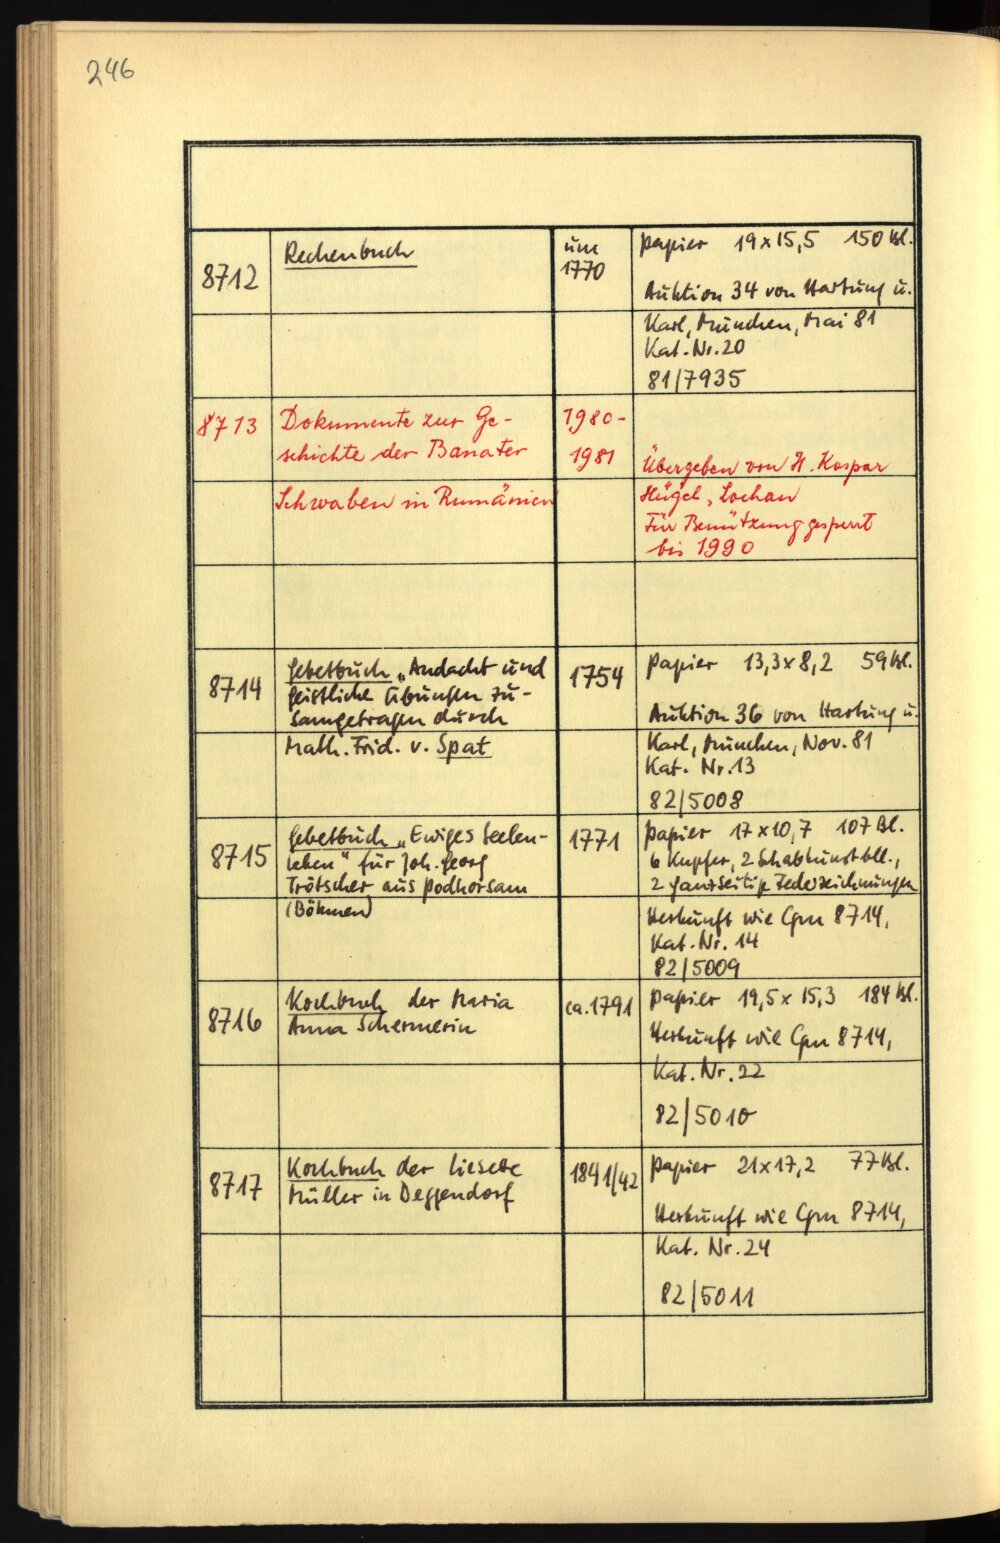 246
8712
Rechenbuch
um
1770
Papier 19 x 15,5 150 Bl.
Auktion 34 von Hartung u.
Karl, München, Mai 81
Kat.-Nr. 20
81/7935
8713
Dokumente zur Ge-
schichte der Banater
Schwaben in Rumänien
1980-
1981
Übergeben von H. Kaspar
Hügel, Lochau
Für Benützung gesperrt
bis 1990
8714
Gebetbuch „Andacht und
geistliche Übungen zu-
samgetragen durch
Math. Frid. v. Spat
1754
Papier 13,3 x 8,2 59 Bl.
Auktion 36 von Hartung u.
Karl, München, Nov. 81
Kat. Nr. 13
82/5008
8715
Gebetbuch „Ewiges Seelen-
leben" für Joh. Georg
Trötscher aus Podhorsam
(Böhmen)
1771
Papier 17 x 10,7 107 Bl.
6 Kupfer, 2 Schabkunstbll.,
2 ganzseitige Federzeichnungen
Herkunft wie Cgm 8714,
Kat.-Nr. 14
82/5009
8716
Kochbuch der Maria
Anna Schermerin
ca. 1791
Papier 19,5 x 15,3 184 Bl.
Herkunft wie Cgm 8714,
Kat. Nr. 22
82/5010
8717
Kochbuch der Liesette
Müller in Deggendorf
1841/42
Papier 21 x 17,2 77 Bl.
Herkunft wie Cgm 8714,
Kat. Nr. 24
82/5011